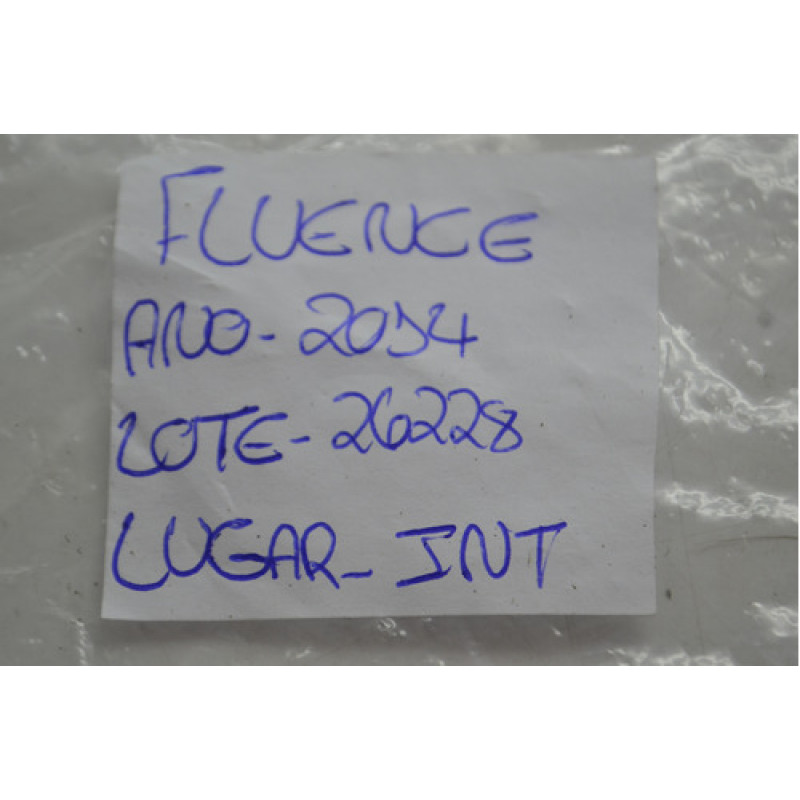 FLUENCE
ANO-2014
LOTE-26228
LUGAR-INT